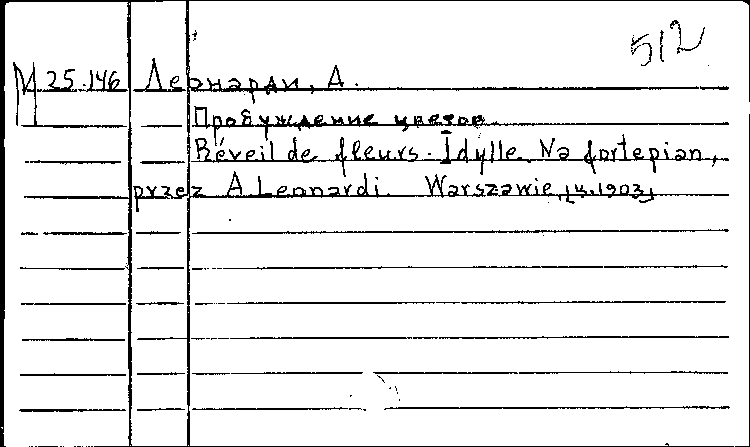 512
M 25.146 Леонарди, А.
Пробуждение цветов.
Réveil de fleurs. Idylle. Na fortepian,
przez A. Leonardi. Warszawie, [ц.1903]